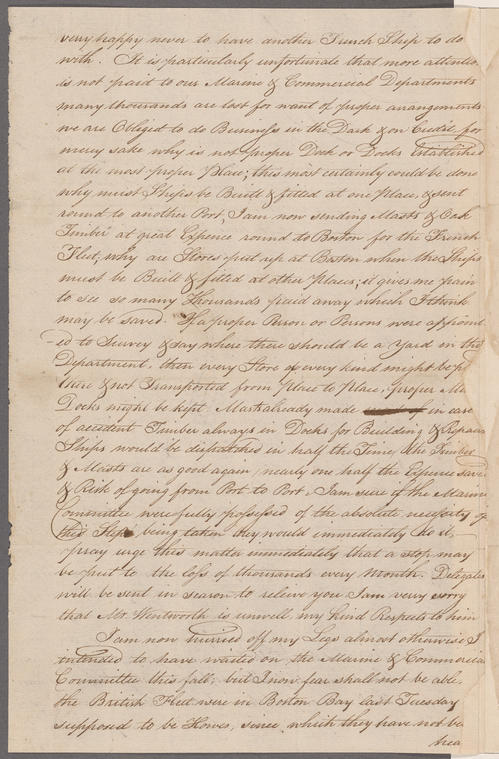 very happy never to have another French Ship to do
with. It is particularly unfortunate that more attentio
is not paid to our Marine & Commercial Departments
many thousands are lost for want of proper arrangements
we are Obliged to do Business in the Dark & on Credit, for
mercy sake why is not proper Dock or Docks Established
at the most proper Place; this most certainly could be done
why must Ships be Built & fitted at one Place, & sent
round to another Port, I am now sending Masts & Oak
Timber at great Expence round to Boston for the French
Fleet, why are Stores put up at Boston when the Ships
must be Built & fitted at other Places; it gives me pain
to see so many Thousands paid away which I think
may be saved. If a proper Person or Persons were appoint
-ed to Survey & say where there should be a Yard in the
Department, then every Store of every kind might be p
there & not Transported from Place to Place, proper M
Docks might be kept. Masts already made in case
of accident Timber always in Docks for Building & Repairs
Ships would be dispatched in half the Time, the Timber
& Masts are as good again, nearly one half the Expence save
& Risk of going from Port to Port, I am sure if the Marine
Committee were fully possessed of the absolute necessity of
this Step being taken they would immediately do it,
pray urge this matter immediately that a stop may
be put to the loss of thousands every Month. Delegates
will be sent in season to relieve you I am very sorry
that Mr. Wentworth is unwell my kind Respects to him
I am now hurried off my Legs almost otherwise I
intended to have waited on the Marine & Commercia
Committee this fall; but I now fear shall not be abl
the British Fleet were in Boston Bay last Tuesday
supposed to be Howes, since which they have not be
hea